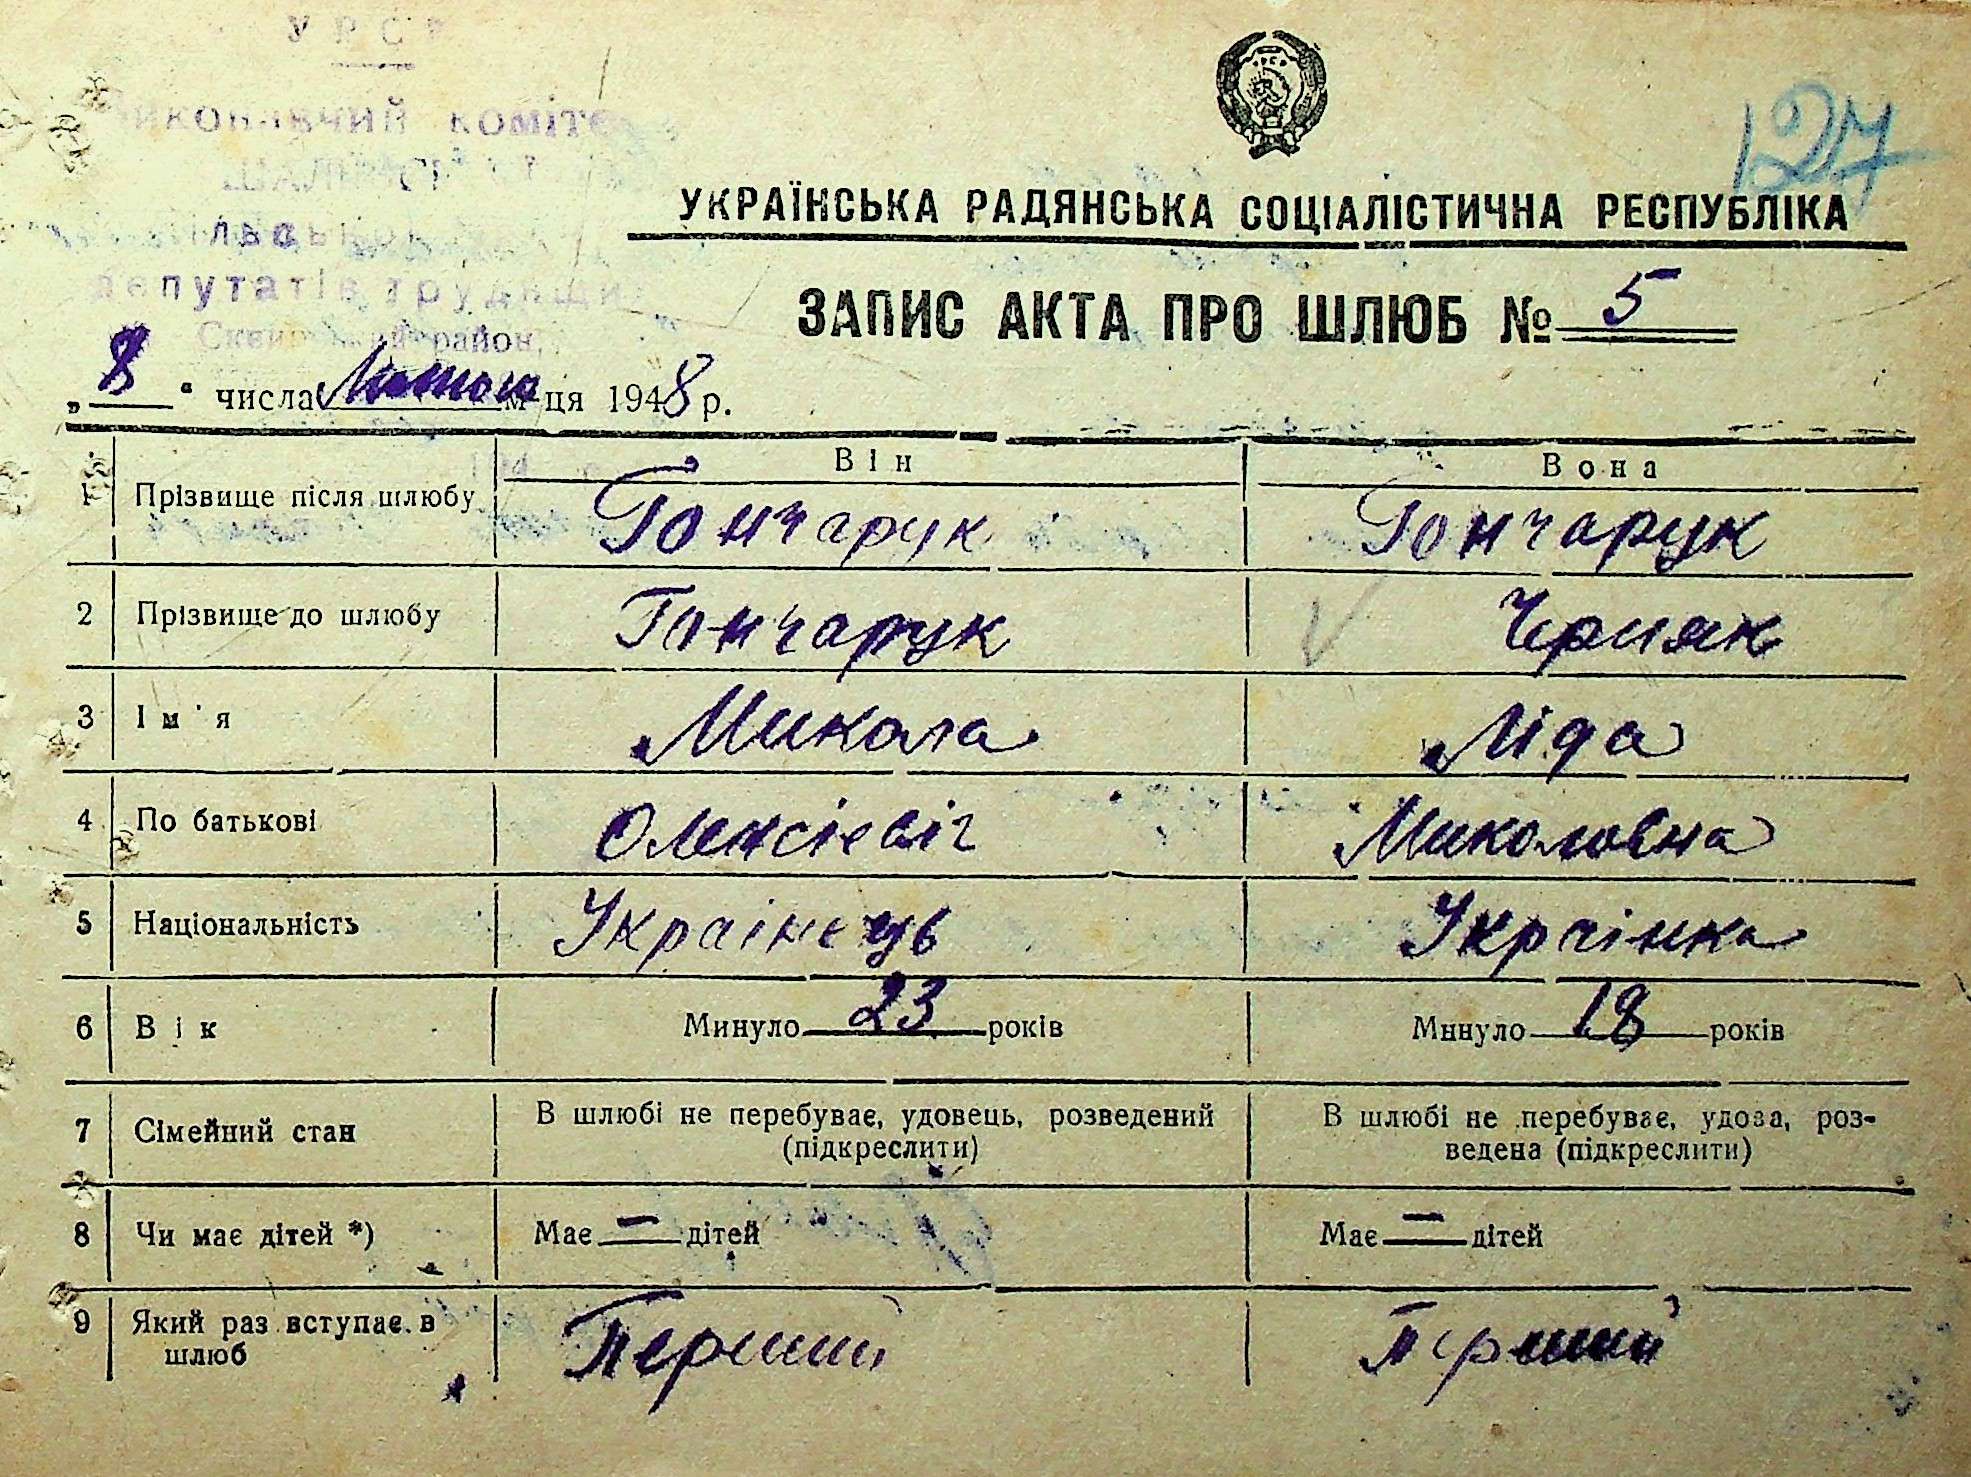 УРСР
Виконавчий комітет
депутатів трудящих
Сквирський район,
127
УКРАЇНСЬКА РАДЯНСЬКА СОЦІАЛІСТИЧНА РЕСПУБЛІКА
ЗАПИС АКТА ПРО ШЛЮБ № 5
„8“ числа Лютого м-ця 1948 р.
Він Вона
1 Прізвище після шлюбу Гончарук Гончарук
2 Прізвище до шлюбу Гончарук Черняк
3 Ім'я Микола Ліда
4 По батькові Олексієвіч Миколовна
5 Національність Українець Українка
6 Вік Минуло 23 років Минуло 18 років
7 Сімейний стан В шлюбі не перебуває, удовець, розведений В шлюбі не перебуває, удова, роз-
(підкреслити) ведена (підкреслити)
8 Чи має дітей *) Має — дітей Має — дітей
9 Який раз вступає в Перший Перший
шлюб